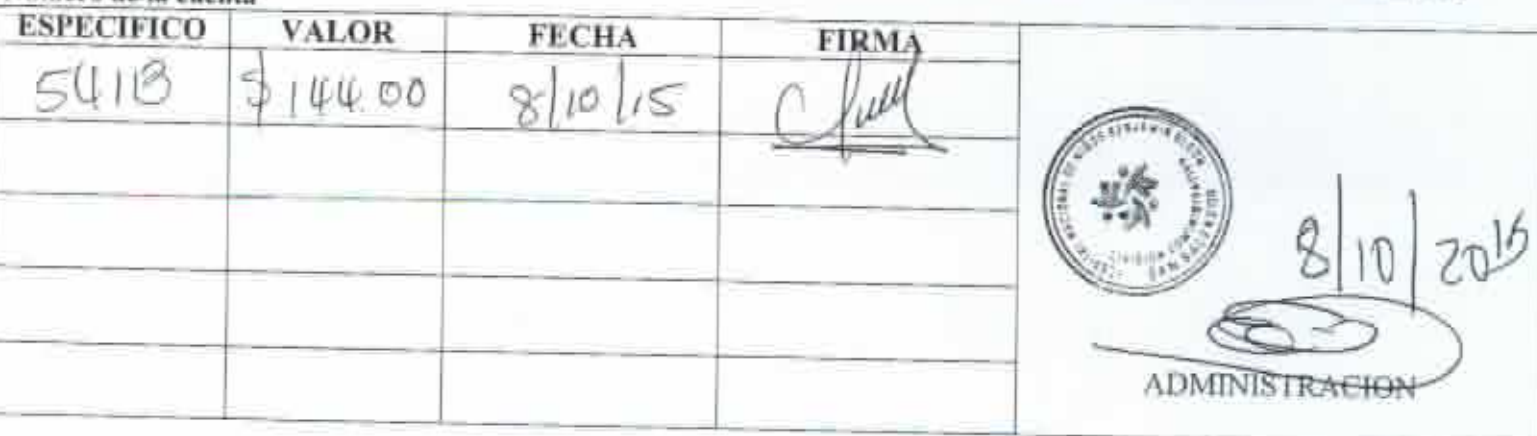 de la cuenta
ESPECIFICO VALOR FECHA FIRMA
54113 $144.00 8/10/15
8/10/2015
ADMINISTRACION